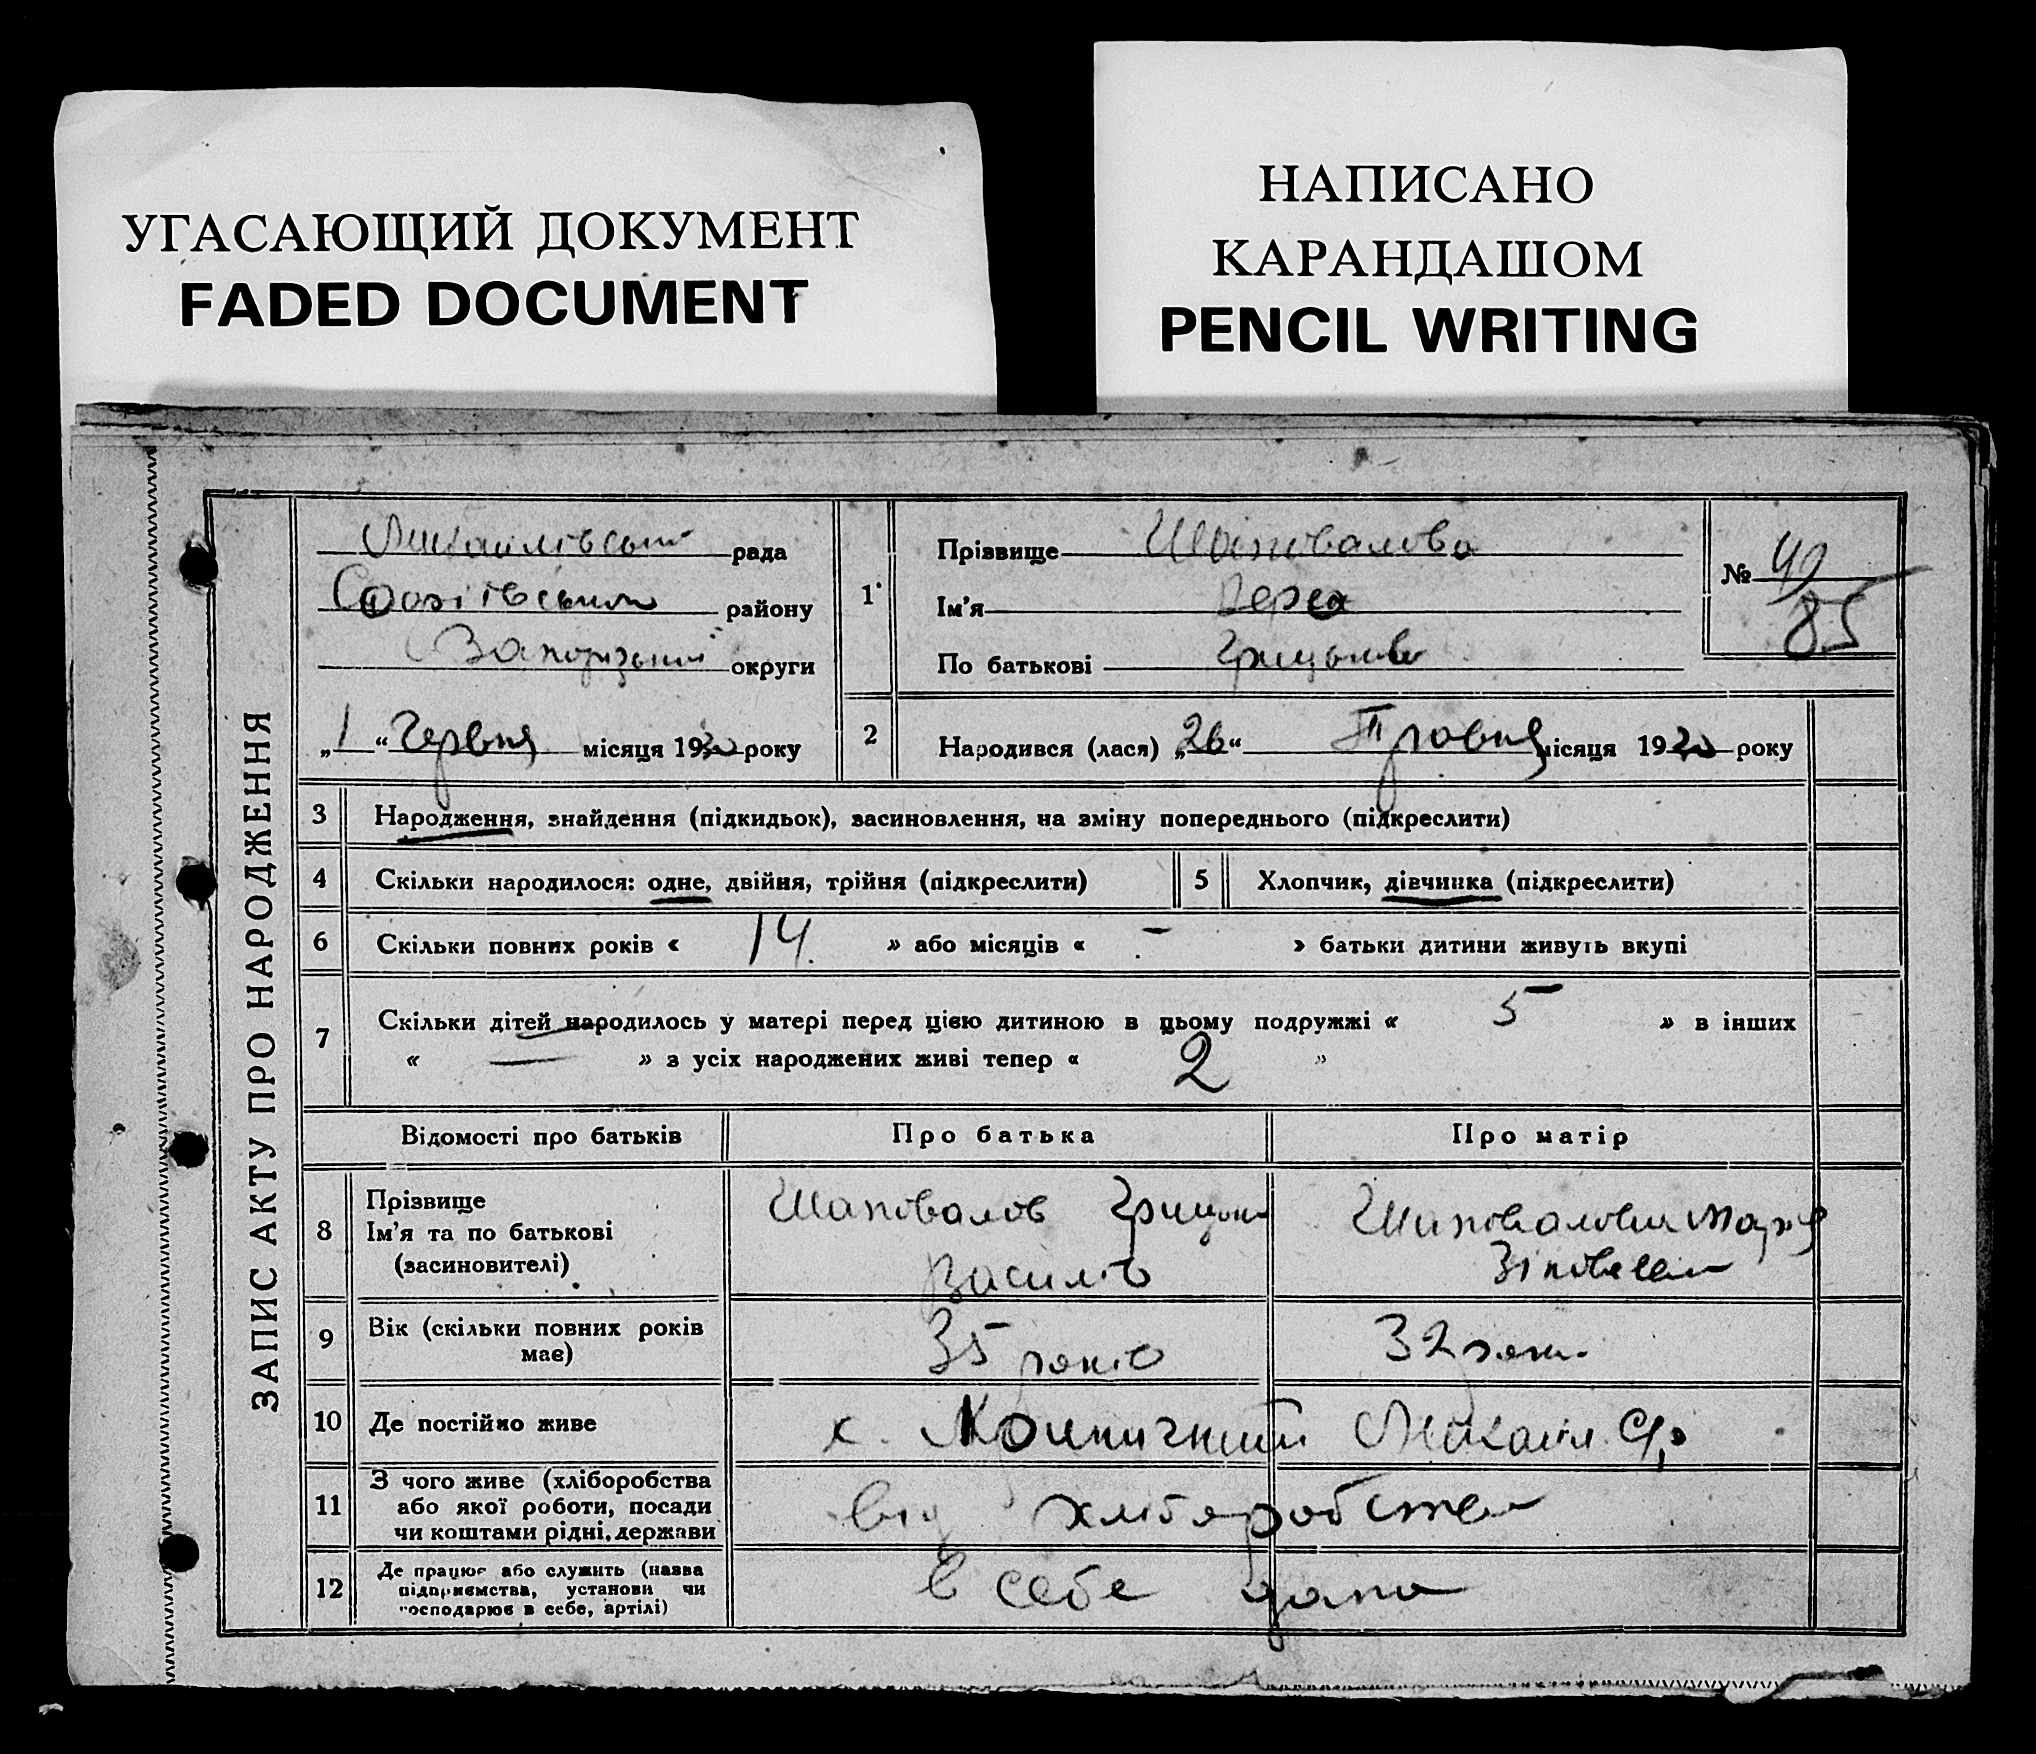 УГАСАЮЩИЙ ДОКУМЕНТ
FADED DOCUMENT
НАПИСАНО
КАРАНДАШОМ
PENCIL WRITING
ЗАПИС АКТУ ПРО НАРОДЖЕННЯ
Михайлівський рада
району
Запорізький округи
„1“ Червня місяця 1930 року
1 Прізвище Шаповалова
Ім'я Вера
По батькові Грицьків
№ 49
85
2 Народився (лася) „26“ Травня місяця 1930 року
3 Народження, знайдення (підкидьок), засиновлення, на зміну попереднього (підкреслити)
4 Скільки народилося: одне, двійня, трійня (підкреслити) 5 Хлопчик, дівчинка (підкреслити)
6 Скільки повних років « 14 » або місяців « - » батьки дитини живуть вкупі
7 Скільки дітей народилось у матері перед цією дитиною в цьому подружжі « 5 » в інших
« — » з усіх народжених живі тепер « 2 »
Відомості про батьків Про батька Про матір
8 Прізвище
Ім'я та по батькові
(засиновителі)
Шаповалов Грицько
Василів
Шаповалова Марія
9 Вік (скільки повних років
має)
35 років
32 роки
10 Де постійно живе
х. Михайл. С/р
11 З чого живе (хліборобства
або якої роботи, посади
чи коштами рідні, держави
від хліборобства
12 Де працює або служить (назва
підприємства, установи чи
господарює в себе, артілі)
в себе дома